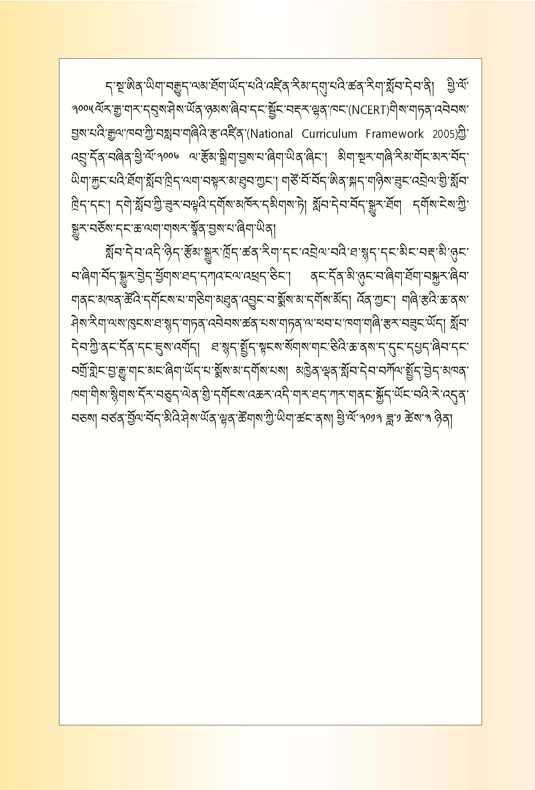 ད་སྔ་ཨིན་ཡིག་བརྒྱུད་ལམ་ཐོག་ཡོད་པའི་འཛིན་རིམ་དགུ་པའི་ཚན་རིག་སློབ་དེབ་ནི། ཕྱི་ལོ་
༢༠༠༥ལོར་རྒྱ་གར་དབུས་ཤེས་ཡོན་ཉམས་ཞིབ་དང་སྦྱོང་བརྡར་ལྷན་ཁང་(NCERT)གིས་གཏན་འབེབས་
བྱས་པའི་རྒྱལ་ཁབ་ཀྱི་བསླབ་གཞིའི་རྩ་འཛིན་(National Curriculum Framework 2005)ཀྱི་
འབྲུ་དོན་བཞིན་ཕྱི་ལོ་༢༠༠༦ ལ་རྩོམ་སྒྲིག་བྱས་པ་ཞིག་ཡིན་ཞིང་། མིག་སྔར་གཞི་རིམ་གོང་མར་བོད་
ཡིག་རྐྱང་པའི་ཐོག་སློབ་ཁྲིད་ལག་བསྟར་མ་ཐུབ་ཀྱང་། གཙོ་བོ་བོད་ཨིན་སྐད་གཉིས་ཟུང་འབྲེལ་གྱི་སློབ་
ཁྲིད་དང་། དགེ་སློབ་ཀྱི་ཟུར་བལྟའི་དགོས་མཁོར་དམིགས་ཏེ། སློབ་དེབ་བོད་སྒྱུར་ཐོག དགོས་ངེས་ཀྱི་
སྒྱུར་བཅོས་དང་ཆ་ལག་གསར་སྣོན་བྱས་པ་ཞིག་ཡིན།
སློབ་དེབ་འདི་ཉིད་རྩོམ་སྒྱུར་ཁྲོད་ཚན་རིག་དང་འབྲེལ་བའི་ཐ་སྙད་དང་མིང་བརྡ་མི་ཉུང་
བ་ཞིག་བོད་སྒྱུར་བྱེད་ཕྱོགས་ཐད་དཀའ་ངལ་འཕྲད་ཅིང་། ནང་དོན་མི་ཉུང་བ་ཞིག་ཐོག་བསྐྱར་ཞིབ་
གནང་མཁན་ཚོའི་དགོངས་པ་གཅིག་མཐུན་འབྱུང་བ་སྨོས་མ་དགོས་མོད། འོན་ཀྱང་། གཞི་རྩའི་ཆ་ནས་
ཤེས་རིག་ལས་ཁུངས་ཐ་སྙད་གཏན་འབེབས་ཚན་པས་གཏན་ལ་ཕབ་པ་ཁག་གཞི་རྩར་བཟུང་ཡོད། སློབ་
དེབ་ཀྱི་ནང་དོན་དང་དུས་འགོད། ཐ་སྙད་སྤྱོད་སྟངས་སོགས་གང་ཅིའི་ཆ་ནས་ད་དུང་དཔྱད་ཞིབ་དང་
བགྲོ་གླེང་བྱ་རྒྱུ་གང་མང་ཞིག་ཡོད་པ་སྨོས་མ་དགོས་པས། མཁྱེན་ལྡན་སློབ་དེབ་བཀོལ་སྤྱོད་བྱེད་མཁན་
ཁག་གིས་སྙིགས་དོར་བཅུད་ལེན་གྱི་དགོངས་འཆར་འདི་གར་ཐད་ཀར་གནང་སྐྱོད་ཡོང་བའི་རེ་འདུན་
བཅས། བཙན་བྱོལ་བོད་མིའི་ཤེས་ཡོན་ལྷན་ཚོགས་ཀྱི་ཡིག་ཚང་ནས། ཕྱི་ལོ་༢༠༡༢ ཟླ་༡ ཚེས་༢ ཉིན།